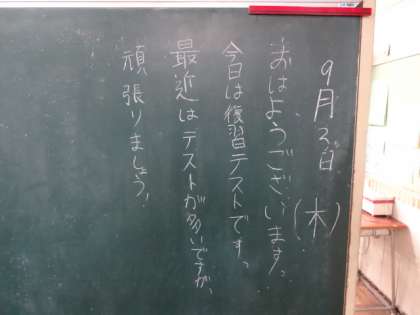 9月3日(木)
おはようございます。
今日は復習テストです。
最近はテストが多いですが、
頑張りましょう!